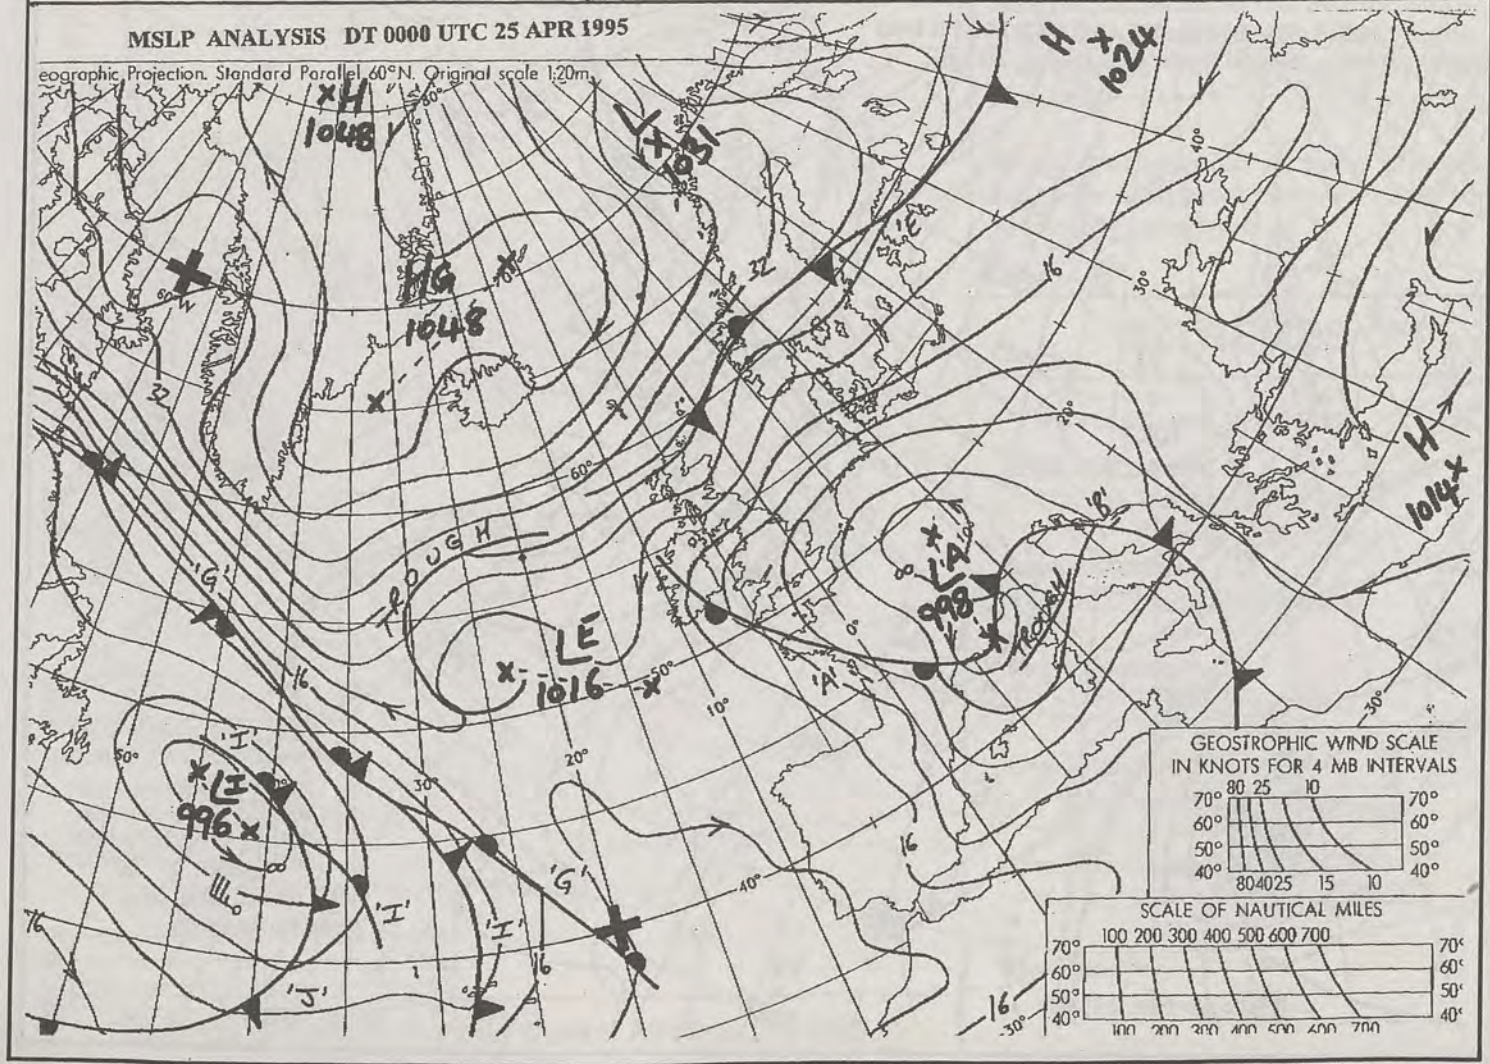 MSLP ANALYSIS DT 0000 UTC 25 APR 1995
eographic Projection. Standard Parallel 60°N. Original scale 1:20m
H
1024
H
1048
L
1031
80°
40°
'E'
HG
1048
70°
60°W
32
16
30°
32
20°
60°
H
1014
TROUGH
'B'
'G'
LA
998
TROUGH
LE
1016
50°
0°
'A'
10°
16
'I'
50°
LI
996
20°
30°
30°
16
'G'
40°
'I'
'I'
16
16
'J'
16
30°
GEOSTROPHIC WIND SCALE
IN KNOTS FOR 4 MB INTERVALS
80 25 10
70° 70°
60° 60°
50° 50°
40° 40°
80 40 25 15 10
SCALE OF NAUTICAL MILES
100 200 300 400 500 600 700
70° 70°
60° 60°
50° 50°
40° 40°
100 200 300 400 500 600 700